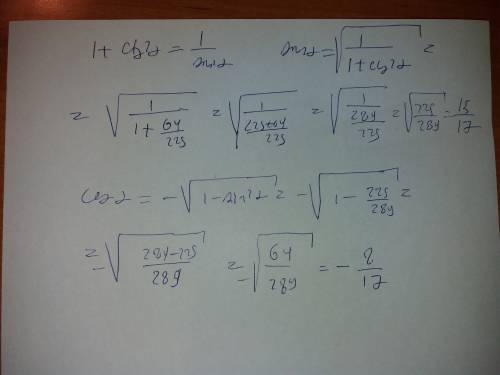 1 + ctg²α = 1/sin²α sin α = √(1/(1+ctg²α)) =
= √(1/(1 + 64/225)) = √(1/((225+64)/225)) = √(1/(289/225)) = √(225/289) = 15/17
cos α = -√(1-sin²α) = -√(1 - 225/289) =
= -√((289-225)/289) = -√(64/289) = -8/17